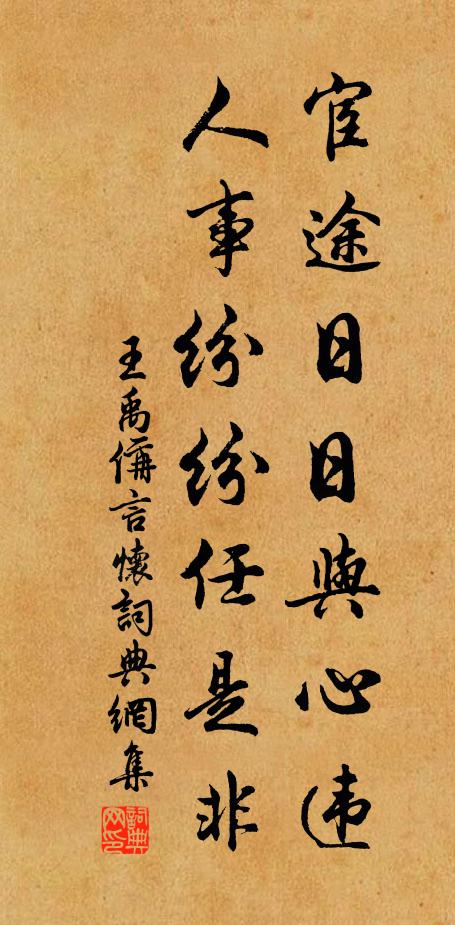 宦途日日與心违
人事紛紛任是非
王禹偁言懷詞典網集
詞典
网印